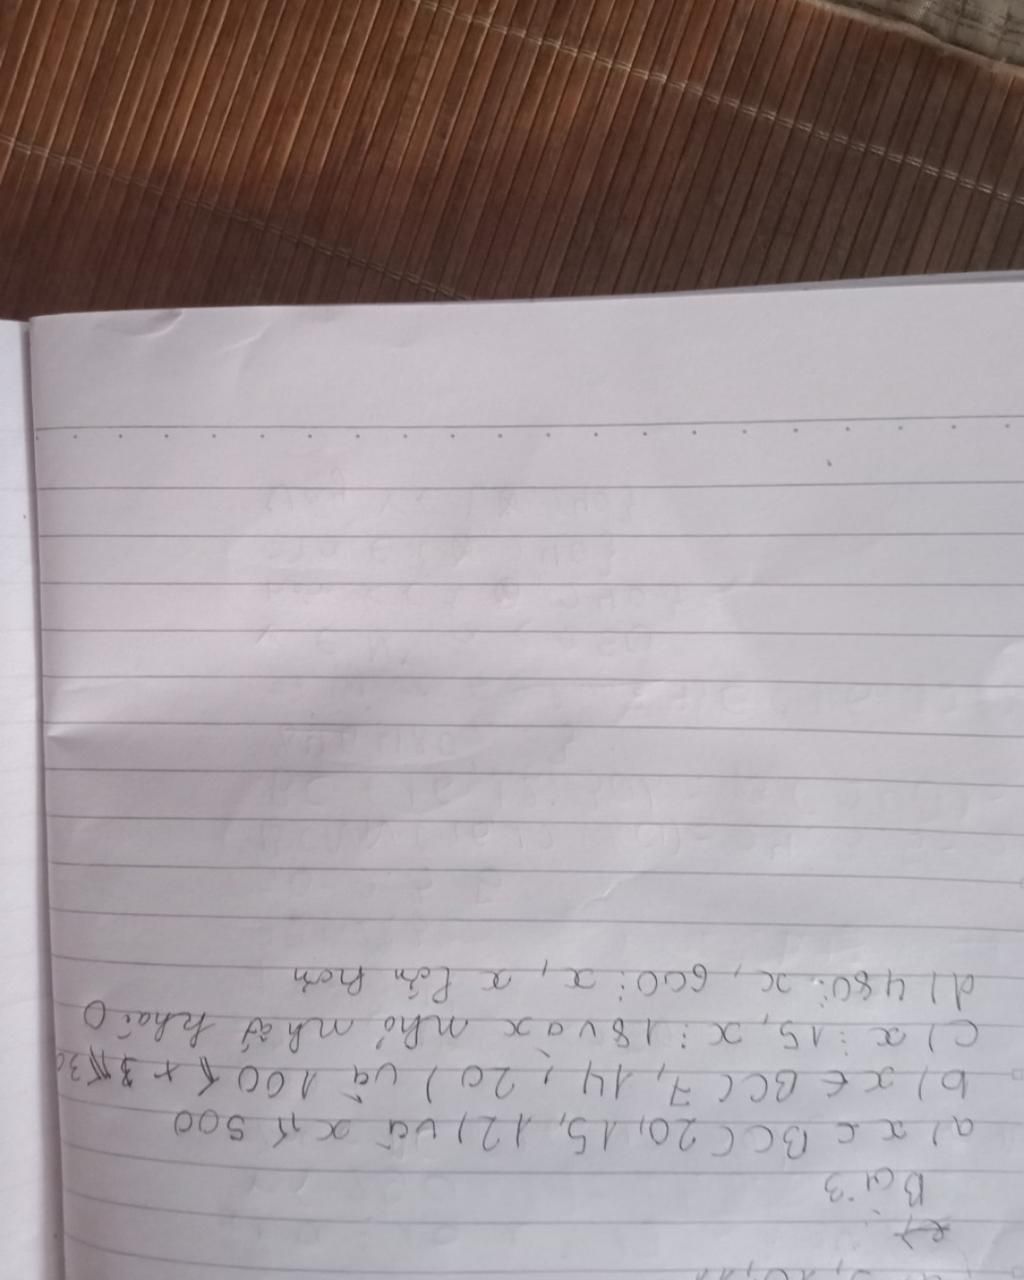 Bài 3
a) x ∈ BC(20, 15, 12) và x ≤ 500
b) x ∈ BC(7, 14, 20) và 100 ≤
c) x ⋮ 15, x ⋮ 18 và x nhỏ nhất khác 0
d) 480 ⋮ x, 600 ⋮ x, x lớn hơn